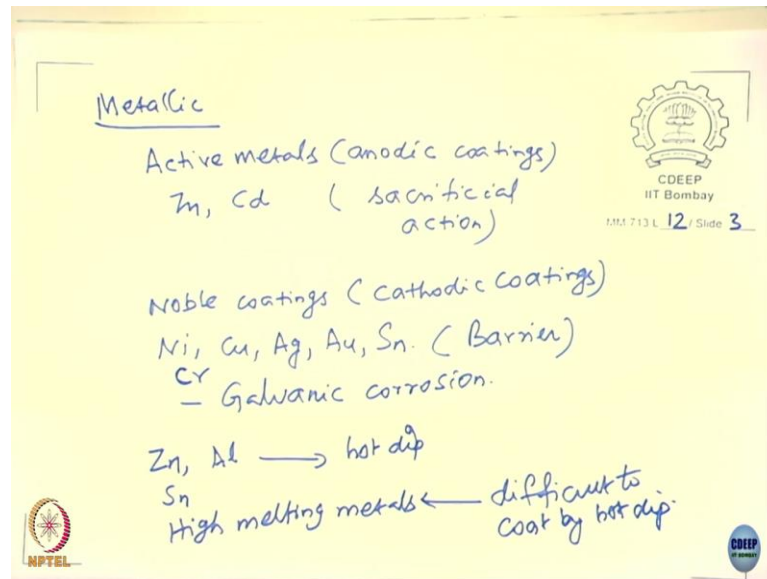 Metallic
Active metals (anodic coatings)
Zn, Cd ( sacrificial
action)
CDEEP
IIT Bombay
MM 713 L 12 / Slide 3
Noble coatings ( cathodic coatings)
Ni, Cu, Ag, Au, Sn. ( Barrier)
Cr
— Galvanic corrosion.
Zn, Al ⟶ hot dip
Sn
High melting metals ⟵ difficult to
coat by hot dip.
NPTEL
CDEEP
IIT BOMBAY